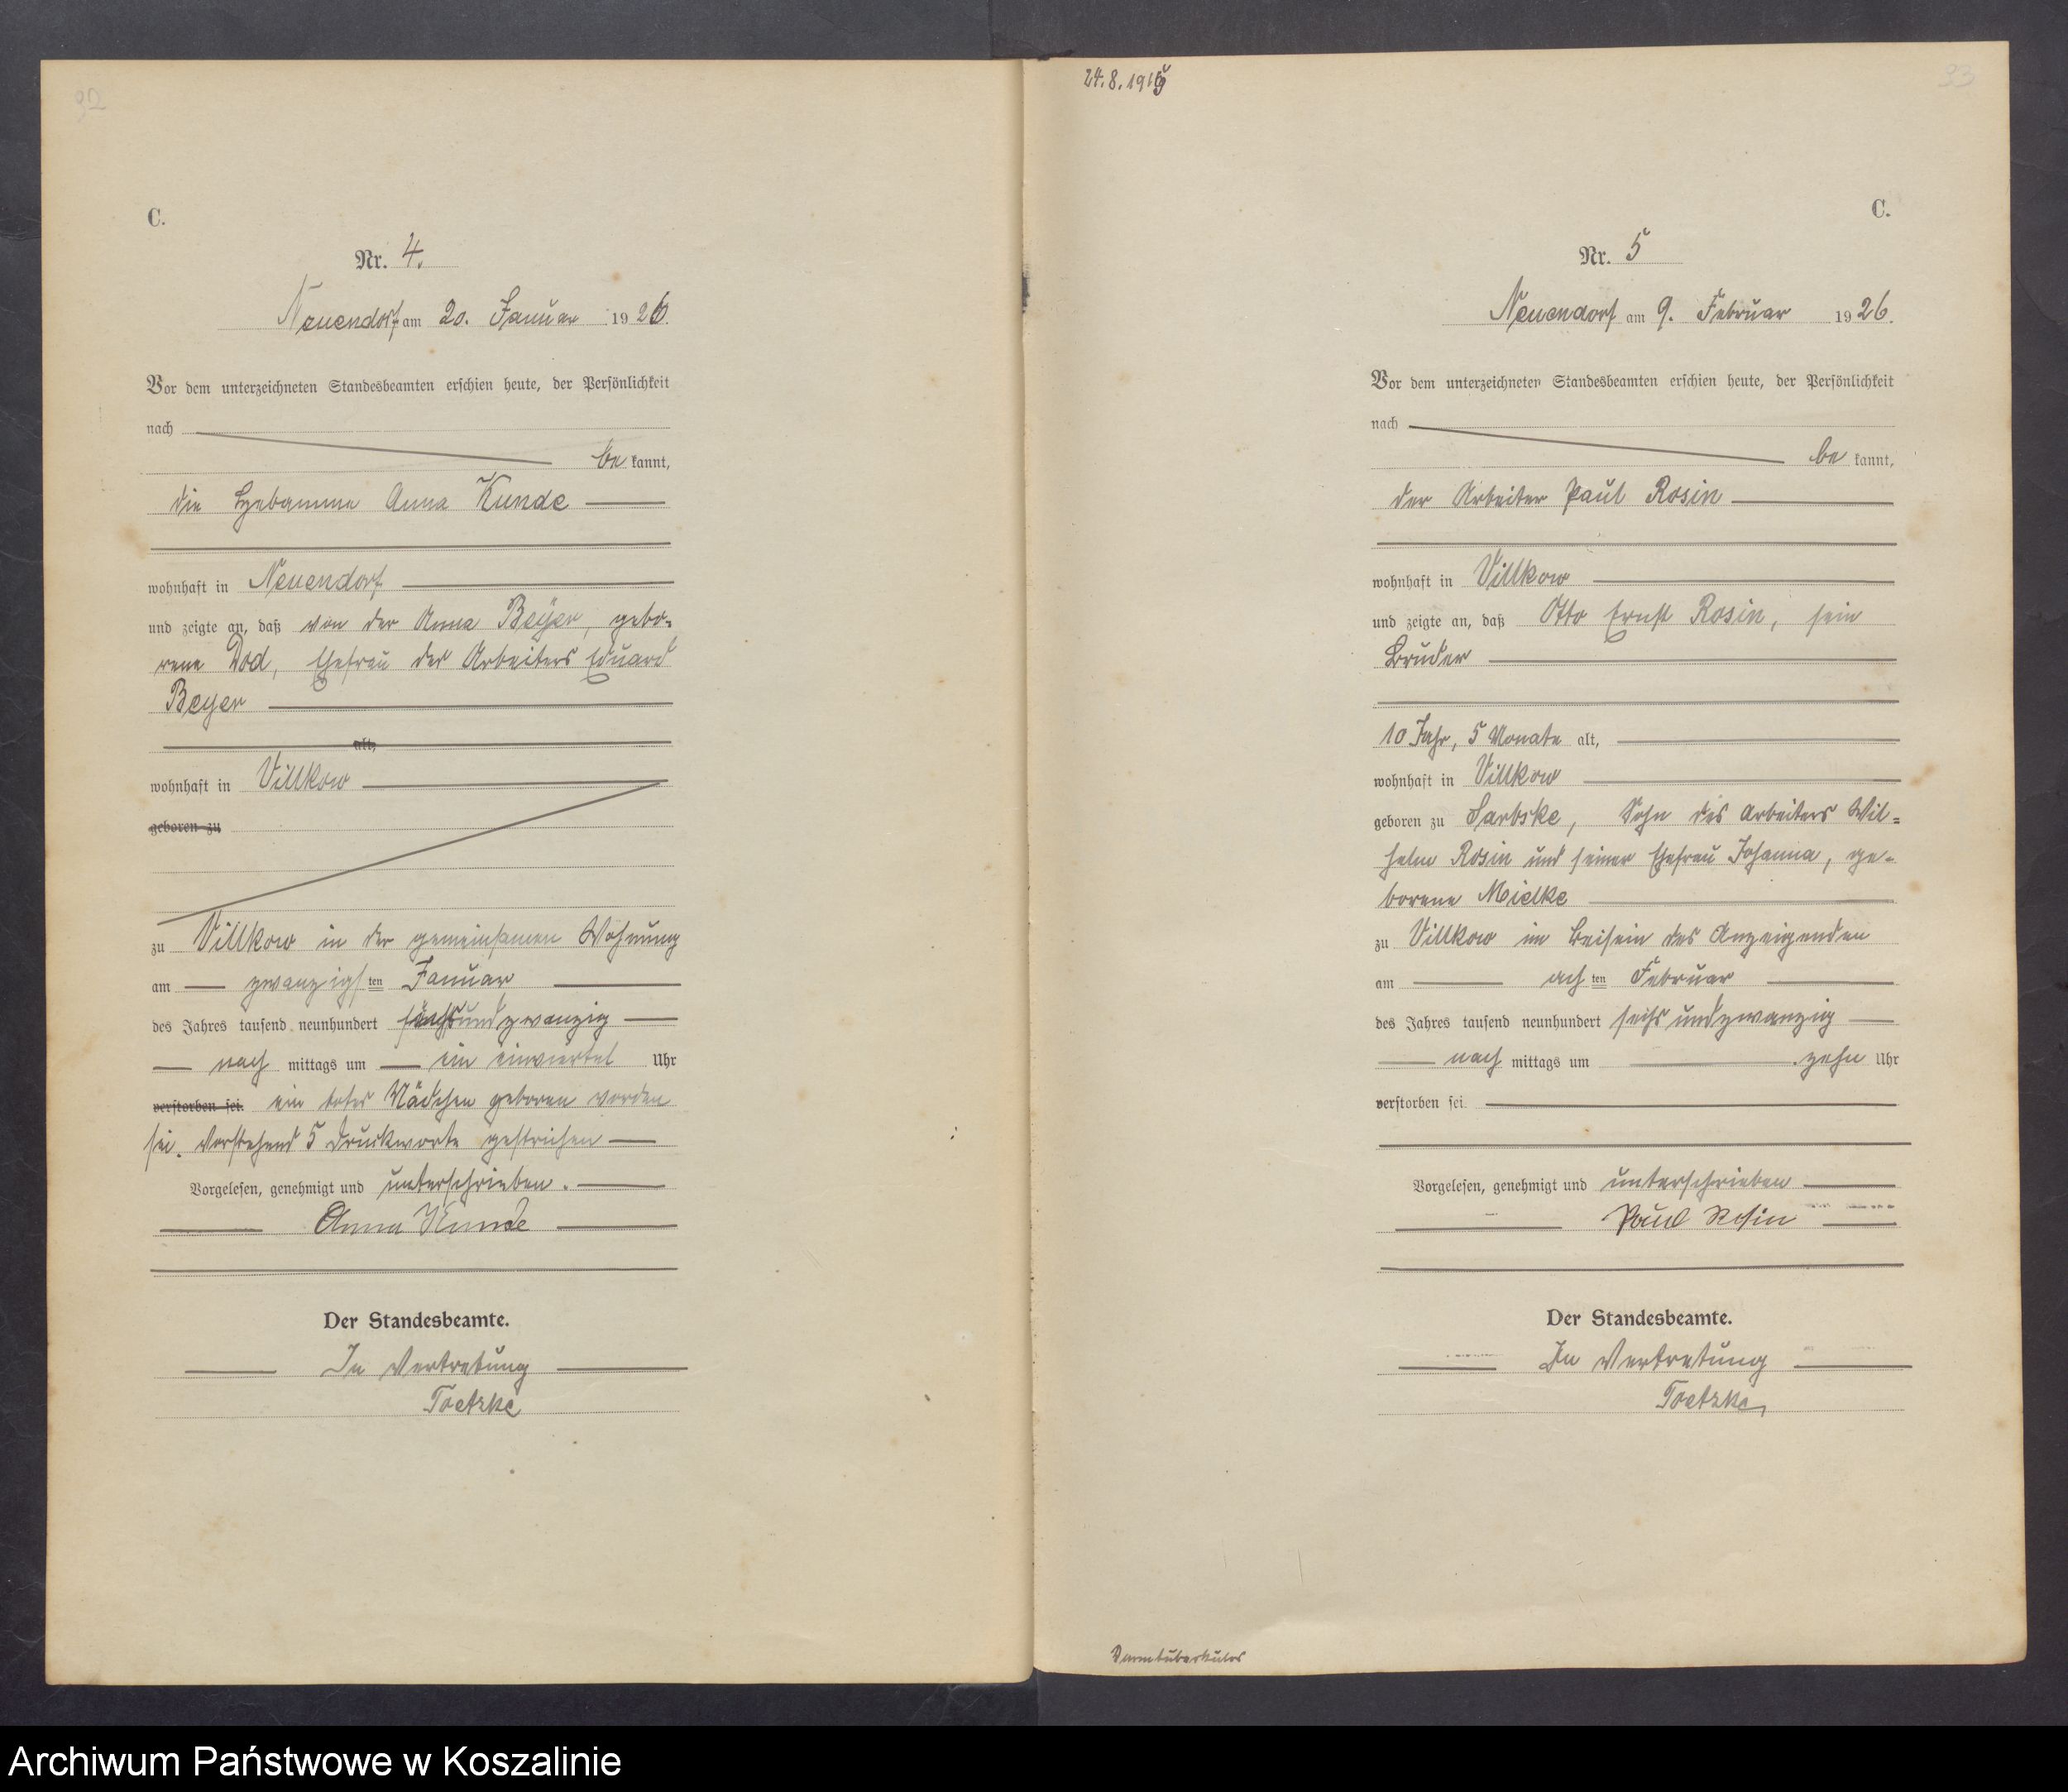 32
C.
Nr. 4.
Neuendorf am 20. Januar 1926.
Vor dem unterzeichneten Standesbeamten erschien heute, der Persönlichkeit
nach
be kannt,
die Hebamme Anna Kunde
wohnhaft in Neuendorf
und zeigte an, daß von der Anna Beyer, gebo-
rene Dod, Ehefrau des Arbeiters Eduard
Beyer
alt,
wohnhaft in Villkow
geboren zu
zu Villkow in der gemeinsamen Wohnung
am zwanzigsten Januar
des Jahres tausend neunhundert sechsundzwanzig
nach mittags um ein einviertel Uhr
verstorben sei. ein totes Mädchen geboren worden
sei. Vorstehend 5 Druckworte gestrichen
Vorgelesen, genehmigt und unterschrieben.
Anna Kunde
Der Standesbeamte.
In Vertretung
Toetzke
24.8.1915
33
C.
Nr. 5
Neuendorf am 9. Februar 1926.
Vor dem unterzeichneten Standesbeamten erschien heute, der Persönlichkeit
nach
be kannt,
der Arbeiter Paul Rosin
wohnhaft in Villkow
und zeigte an, daß Otto Ernst Rosin, sein
Bruder
10 Jahr, 5 Monate alt,
wohnhaft in Villkow
geboren zu Sarbske, Sohn des Arbeiters Wil-
helm Rosin und seiner Ehefrau Johanna, ge-
borene Mielke
zu Villkow im Beisein des Anzeigenden
am achten Februar
des Jahres tausend neunhundert sechsundzwanzig
nach mittags um zehn Uhr
verstorben sei.
Vorgelesen, genehmigt und unterschrieben
Paul Rosin
Der Standesbeamte.
In Vertretung
Toetzke
Darmtuberkulos
Archiwum Państwowe w Koszalinie